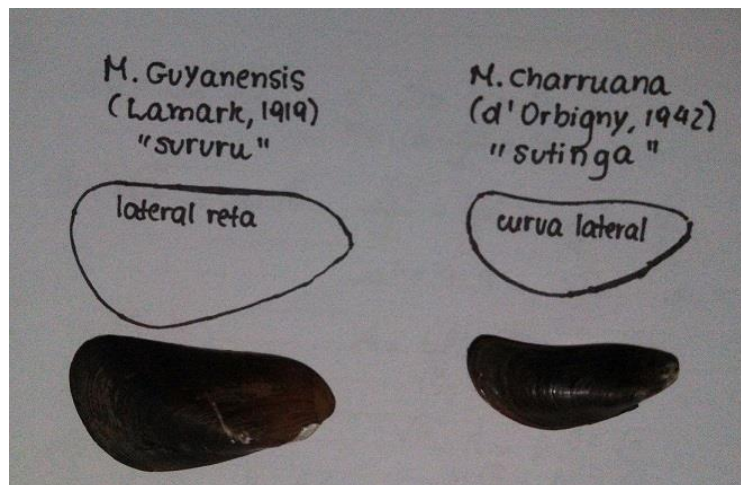 M. Guyanensis
(Lamark, 1919)
"sururu"
lateral reta
M. charruana
(d'Orbigny, 1942)
"sutinga"
curva lateral